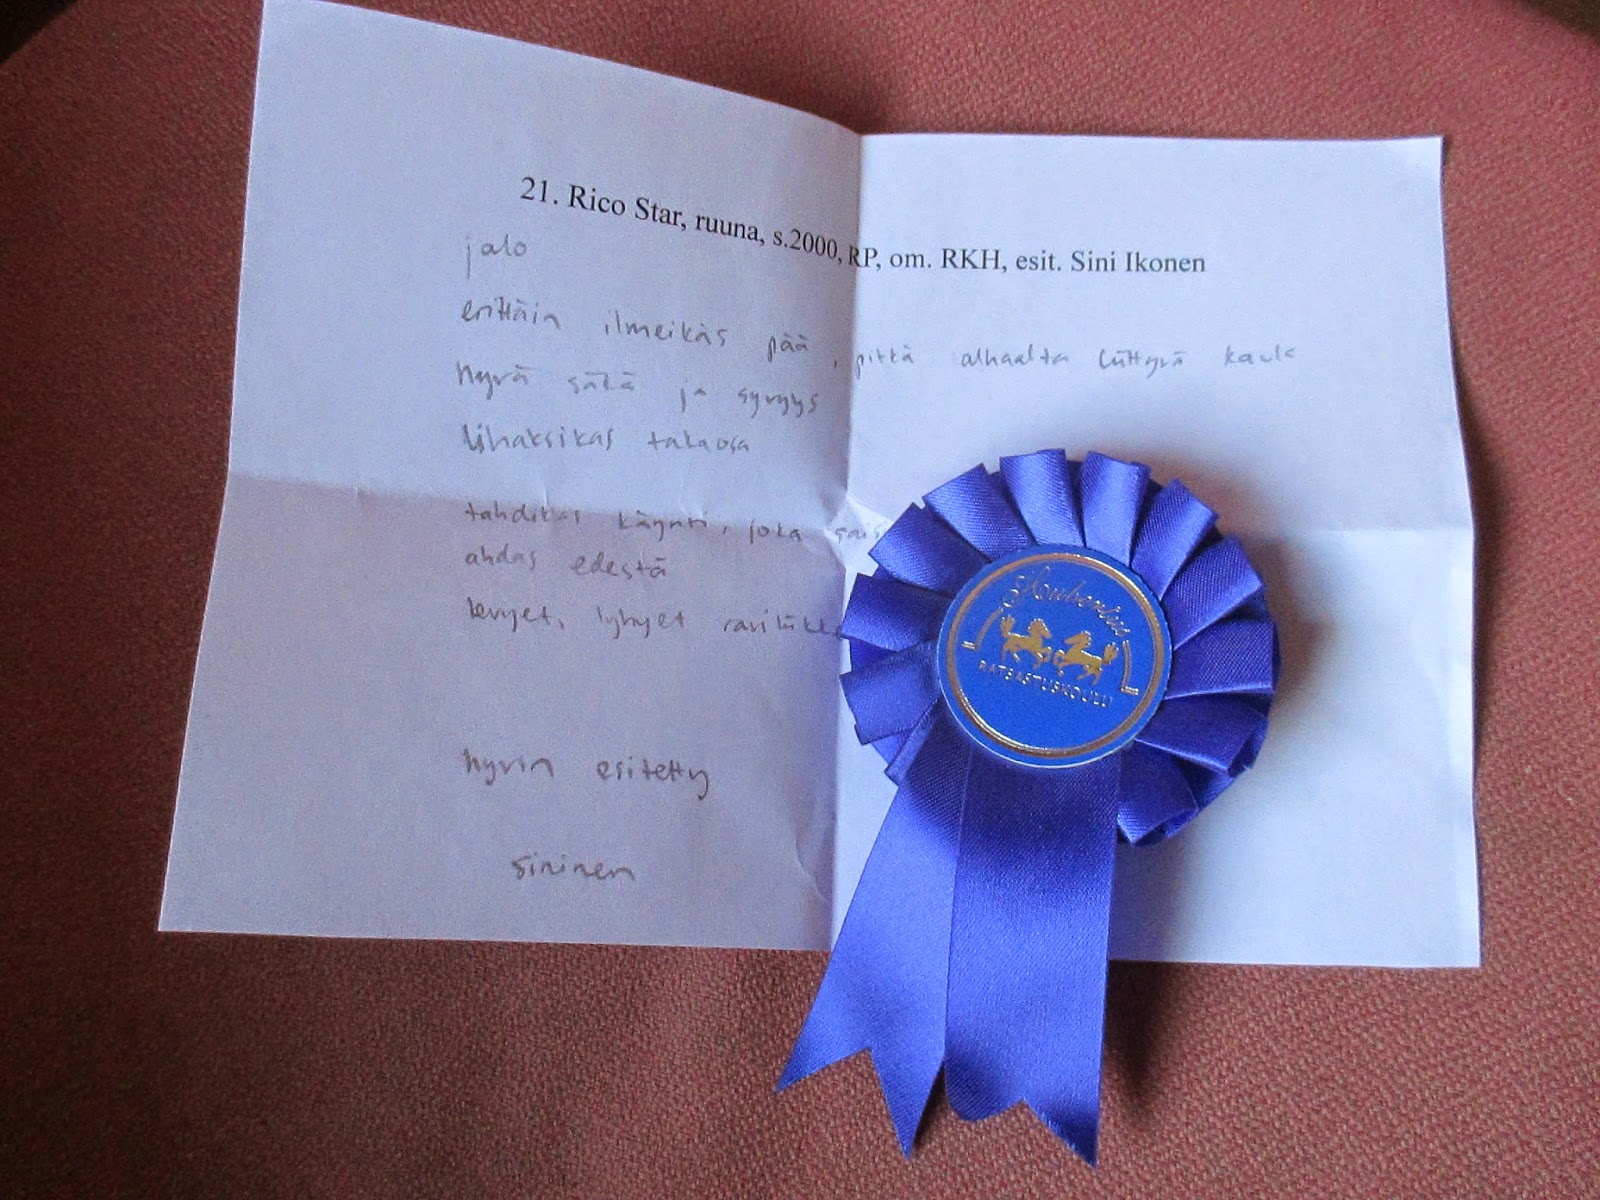 21. Rico Star, ruuna, s.2000, RP, om. RKH, esit. Sini Ikonen
jalo
erittäin ilmeikäs pää, pitkä alhaalta liittyvä kaula
hyvä säkä ja syvyys
lihaksikas takaosa
tahdikas käynti, joka sais
ahdas edestä
kevyet, lyhyet raviliikke
hyvin esitetty
sininen
Hubertus
RATSASTUSKOULU